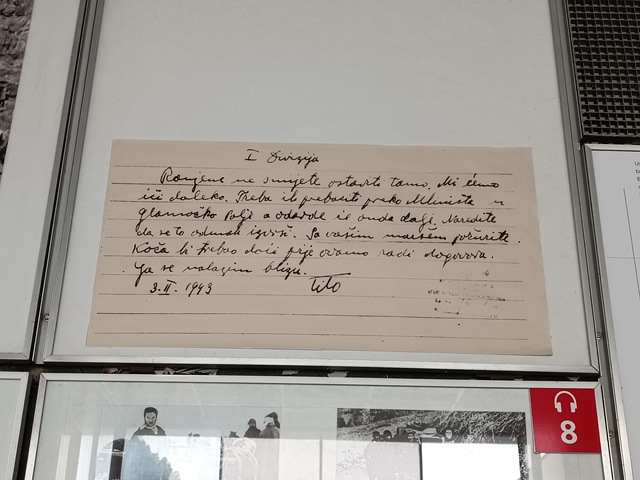 I Divizija
Ranjene ne smijete ostaviti tamo. Mi ćemo
ići daleko. Treba ih prebaciti preko Mliništa u
glamočko polje a odavde i onda dalje. Naredite
da se to odmah izvrši. Sa vašim maršem požurite.
Koča bi trebao doći prije ovamo radi dogovora.
Ja se nalazim blizu.
3.II. 1943 Tito
8